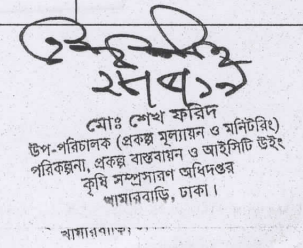 মোঃ শেখ ফরিদ
উপ-পরিচালক (প্রকল্প মূল্যায়ন ও মনিটরিং)
পরিকল্পনা, প্রকল্প বাস্তবায়ন ও আইসিটি উইং
কৃষি সম্প্রসারণ অধিদপ্তর
খামারবাড়ি, ঢাকা।